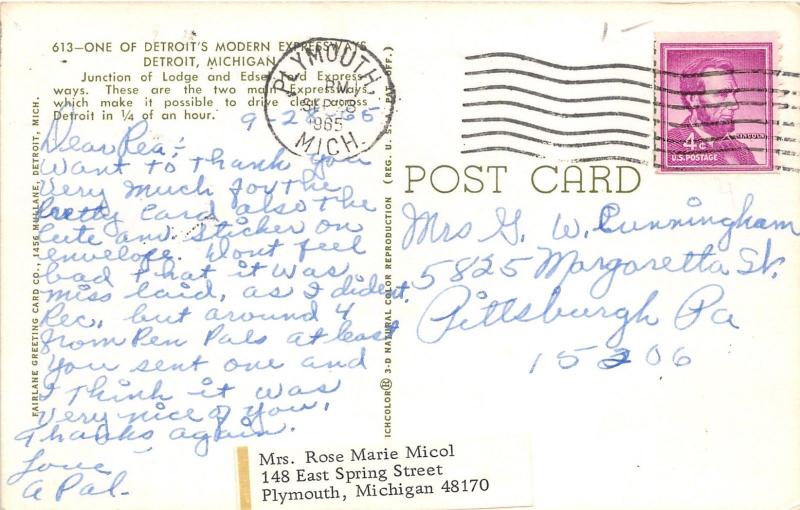 613—ONE OF DETROIT'S MODERN EXPRESSWAYS
DETROIT, MICHIGAN
Junction of Lodge and Edsel Ford Express-
ways. These are the two main Expressways
which make it possible to drive clear across
Detroit in ¼ of an hour.
9-28-65
Dear Rea:-
Want to thank you
very much for the
pretty card also the
cute am. sticker on
envelope. Dont feel
bad that it was
miss laid, as I dident
Rec, but around 4
from Pen Pals at least
you sent one and
I think it was
very nice of you.
Thanks again.
Love
a Pal-
FAIRLANE GREETING CARD CO., 1456 MULLANE, DETROIT, MICH.
ICHCOLOR® 3-D NATURAL COLOR REPRODUCTION (REG. U. S. PAT. OFF.)
PLYMOUTH
PM
SEP 28
1965
MICH.
1-
LINCOLN
4¢
U.S. POSTAGE
POST CARD
Mrs G. W. Cunningham
5825 Margaretta St.
Pittsburgh Pa
15206
Mrs. Rose Marie Micol
148 East Spring Street
Plymouth, Michigan 48170